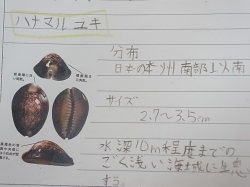 ハナマルユキ
分布
日本の本州南部以南
サイズ
2.7〜3.5cm
水深10m程度までの
ごく浅い海域に生息
する。